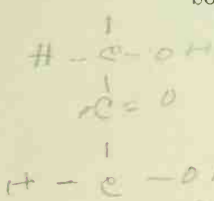 bo
|
H - C - O H
|
C = O
|
H - C - O